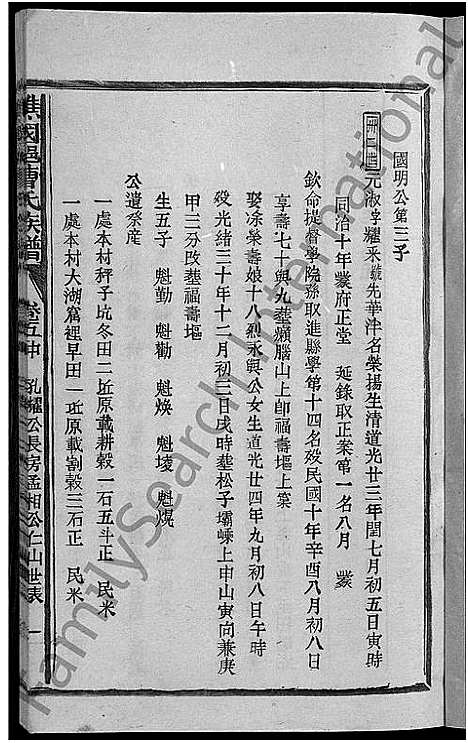 國明公第三子
卅二世 元淑字耀釆號先華泮名榮揚生清道光廿三年閏七月初五日寅時
同治十年蒙府正堂 延錄取正案第一名八月 蒙
欽命提督學院孫取進縣學第十四名歿民國十年辛酉八月初八日
享壽七十與九塟獺腦山上卽福壽塸上棠
娶凃榮壽娘十八烈永與公女生道光廿四年九月初八日午時
歿光緒三十年十二月初三日戌時塟松子壩嵊上申山寅向兼庚
甲三分改塟福壽塸
生五子 魁勤 魁勷 魁煥 魁堎 魁熀
公遺祭産
一處本村秤子坑冬田二坵原載耕穀一石五斗正 民米
一處本村大湖窩裡早田一坵原載割穀三石正 民米
譙國邑曹氏族譜 卷五中 孔耀公長房孟相公仁山世表 一
FamilySearch International